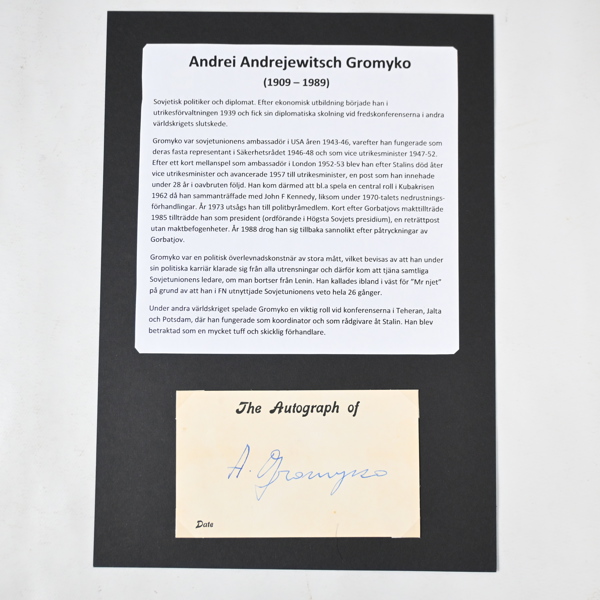 Andrei Andrejewitsch Gromyko
(1909 – 1989)
Sovjetisk politiker och diplomat. Efter ekonomisk utbildning började han i
utrikesförvaltningen 1939 och fick sin diplomatiska skolning vid fredskonferenserna i andra
världskrigets slutskede.
Gromyko var sovjetunionens ambassadör i USA åren 1943-46, varefter han fungerade som
deras fasta representant i Säkerhetsrådet 1946-48 och som vice utrikesminister 1947-52.
Efter ett kort mellanspel som ambassadör i London 1952-53 blev han efter Stalins död åter
vice utrikesminister och avancerade 1957 till utrikesminister, en post som han innehade
under 28 år i oavbruten följd. Han kom därmed att bl.a spela en central roll i Kubakrisen
1962 då han sammanträffade med John F Kennedy, liksom under 1970-talets nedrustnings-
förhandlingar. År 1973 utsågs han till politbyråmedlem. Kort efter Gorbatjovs makttillträde
1985 tillträdde han som president (ordförande i Högsta Sovjets presidium), en reträttpost
utan maktbefogenheter. År 1988 drog han sig tillbaka sannolikt efter påtryckningar av
Gorbatjov.
Gromyko var en politisk överlevnadskonstnär av stora mått, vilket bevisas av att han under
sin politiska karriär klarade sig från alla utrensningar och därför kom att tjäna samtliga
Sovjetunionens ledare, om man bortser från Lenin. Han kallades ibland i väst för ”Mr njet”
på grund av att han i FN utnyttjade Sovjetunionens veto hela 26 gånger.
Under andra världskriget spelade Gromyko en viktig roll vid konferenserna i Teheran, Jalta
och Potsdam, där han fungerade som koordinator och som rådgivare åt Stalin. Han blev
betraktad som en mycket tuff och skicklig förhandlare.
The Autograph of
A. Gromyko
Date